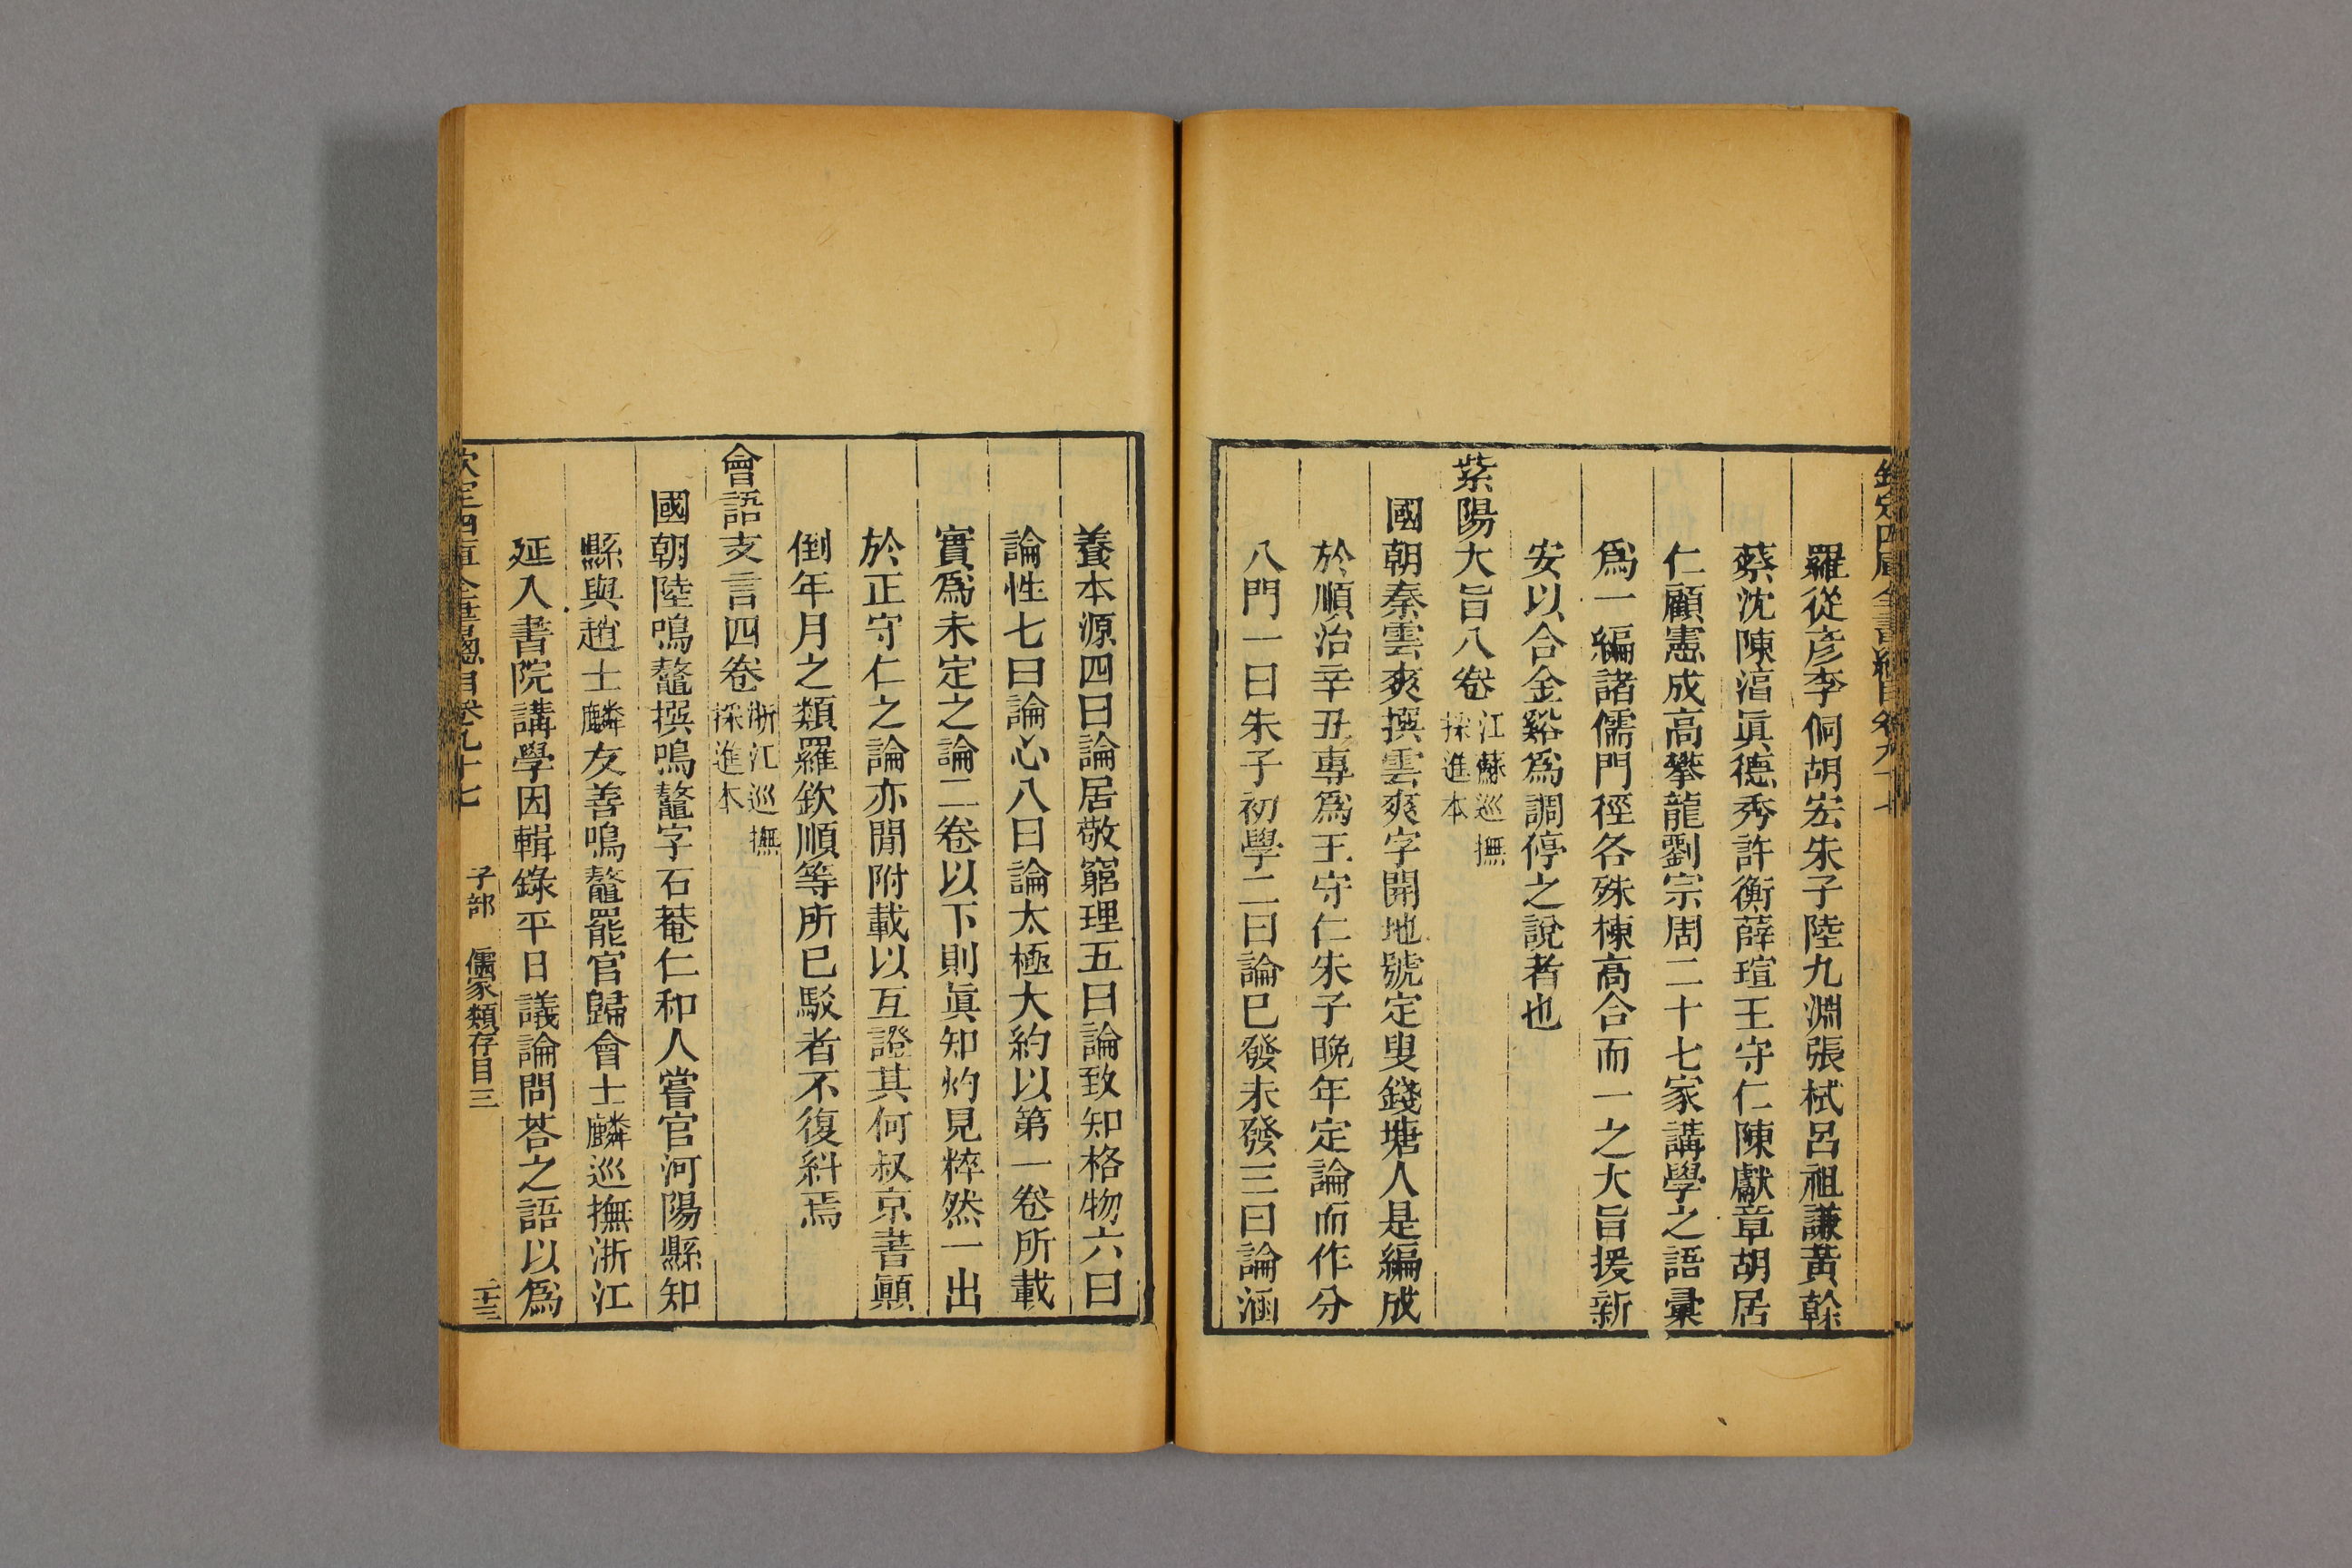 欽定四庫全書總目卷九十七
羅從彥李侗胡宏朱子陸九淵張栻呂祖謙黃榦
蔡沈陳淳眞德秀許衡薛瑄王守仁陳獻章胡居
仁顧憲成高攀龍劉宗周二十七家講學之語彙
爲一編諸儒門徑各殊棟高合而一之大旨援新
安以合金谿爲調停之說者也
紫陽大旨八卷江蘇巡撫採進本
國朝秦雲爽撰雲爽字開地號定叟錢塘人是編成
於順治辛丑專爲王守仁朱子晩年定論而作分
八門一曰朱子初學二曰論已發未發三曰論涵
養本源四曰論居敬窮理五曰論致知格物六曰
論性七曰論心八曰論太極大約以第一卷所載
實爲未定之論二卷以下則眞知灼見粹然一出
於正守仁之論亦間附載以互證其何叔京書顚
倒年月之類羅欽順等所已駁者不復糾焉
會語支言四卷浙江巡撫採進本
國朝陸鳴鼇撰鳴鼇字石菴仁和人嘗官河陽縣知
縣與趙士麟友善鳴鼇罷官歸會士麟巡撫浙江
延入書院講學因輯錄平日議論問荅之語以爲
欽定四庫全書總目卷九十七 子部 儒家類存目三 二十三